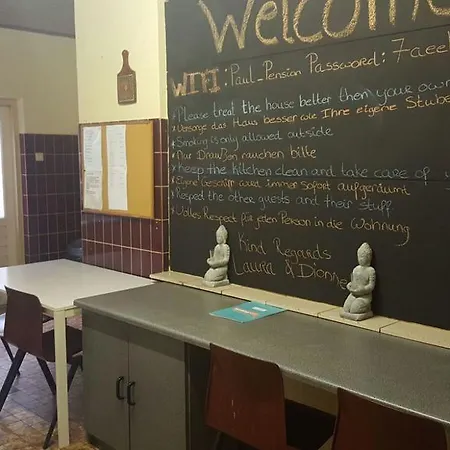 Welcome
WIFI: Paul-Pension Password: 7aeel
*Please treat the house better then your own
*Versorge das Haus besser wie Ihre eigene Stube
*Smoking is only allowed outside
*Nur Draußen rauchen bitte
*Keep the kitchen clean and take care of
*Eigene Geschirr wird immer sofort aufgeräumt
*Respect the other guests and their stuff
*Volles Respect für jeden Person in die Wohnung
Kind Regards
Laura & Dionne